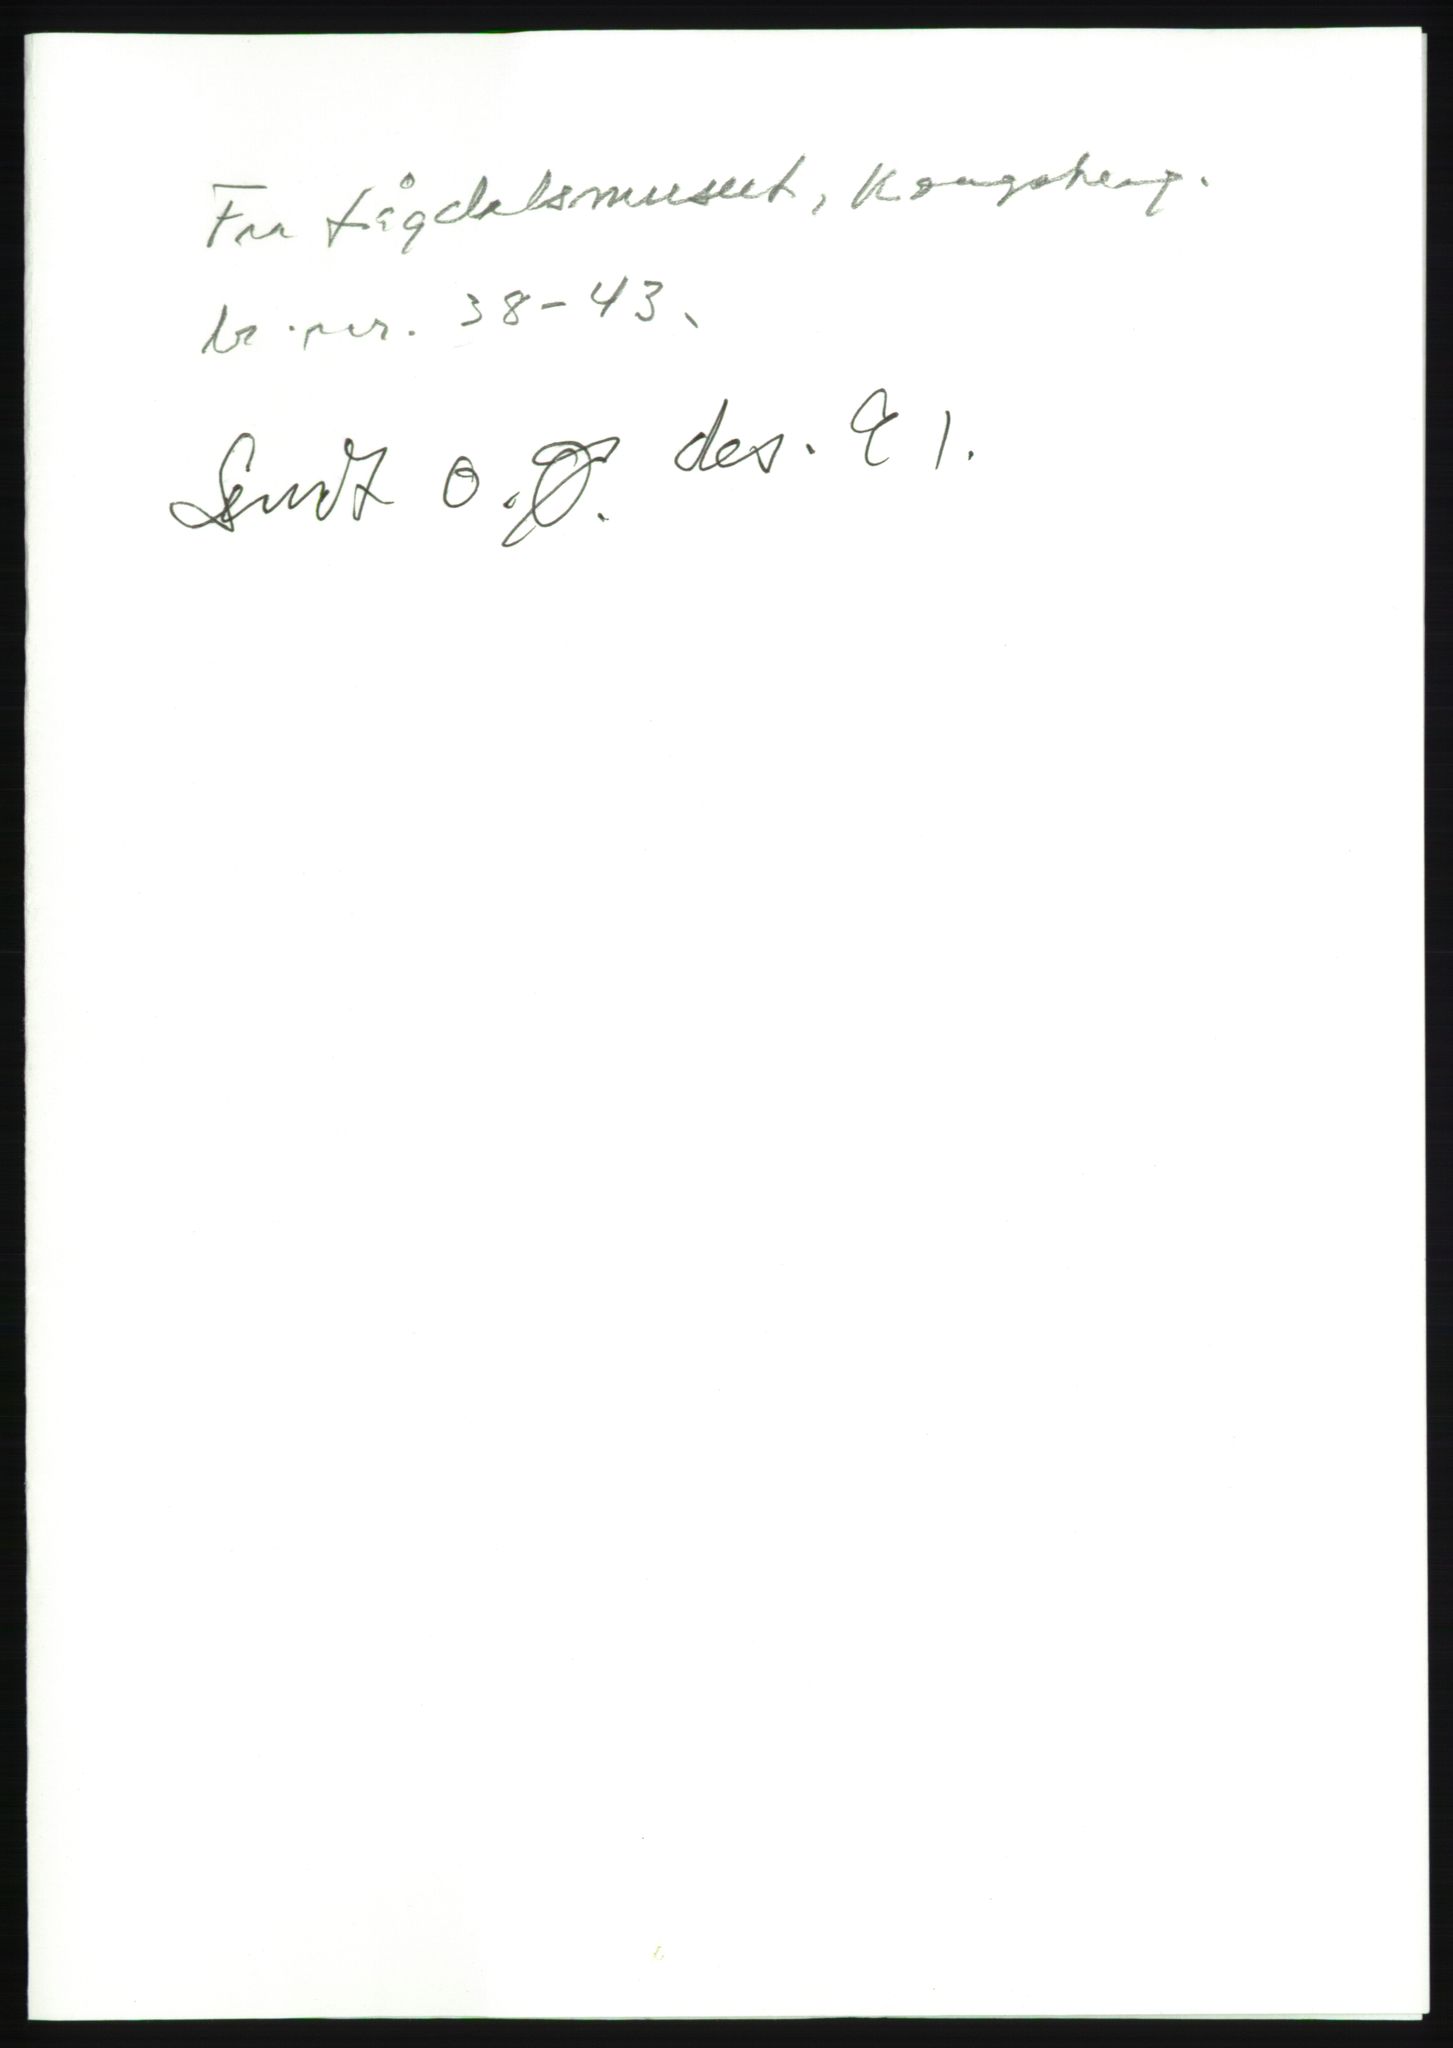 Fra Lågdalsmuseet, Kongsberg.
br. nr. 38-43.
Sendt O.Ø. des. 91.